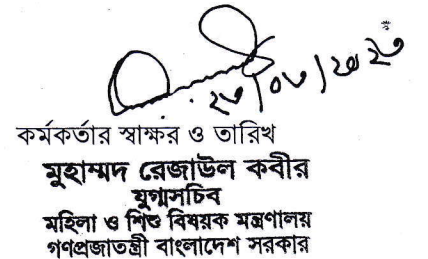 কর্মকর্তার স্বাক্ষর ও তারিখ
মুহাম্মদ রেজাউল কবীর
যুগ্মসচিব
মহিলা ও শিশু বিষয়ক মন্ত্রণালয়
গণপ্রজাতন্ত্রী বাংলাদেশ সরকার